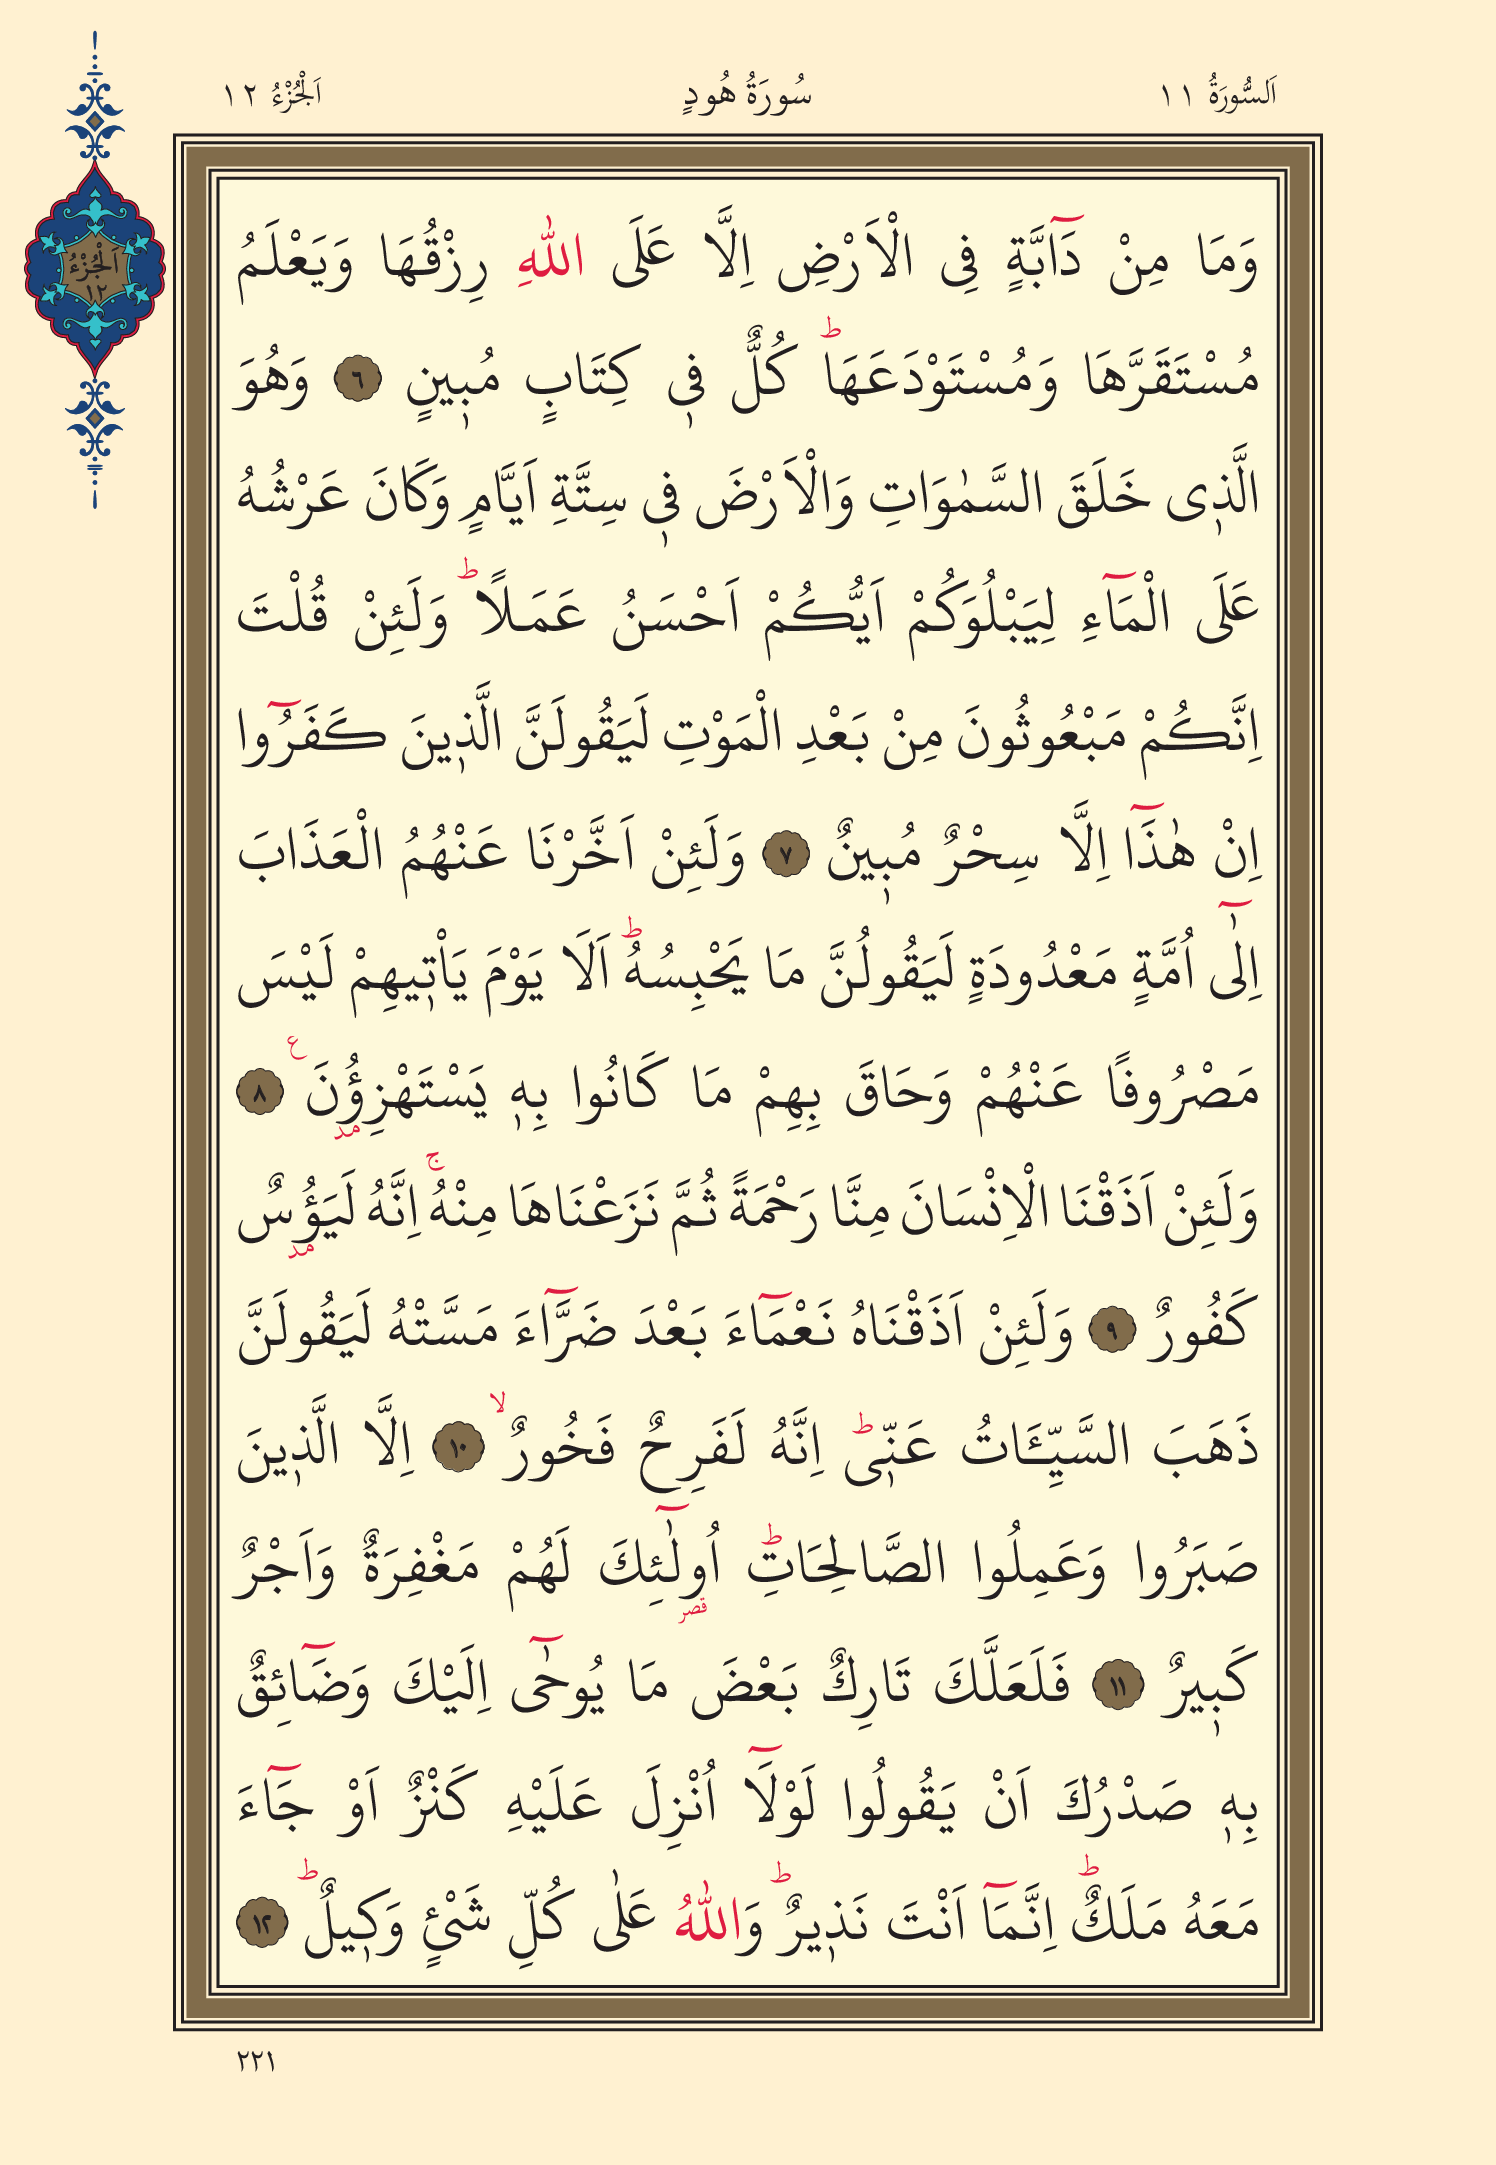 اَلسُّورَةُ ١١
سُورَةُ هُودٍ
اَلْجُزْءُ ١٢
اَلْجُزْءُ
١٢
وَمَا مِنْ دَٓابَّةٍ فِى الْاَرْضِ اِلَّا عَلَى اللّٰهِ رِزْقُهَا وَيَعْلَمُ
مُسْتَقَرَّهَا وَمُسْتَوْدَعَهَاۜ كُلٌّ فٖى كِتَابٍ مُبٖينٍ ٦ وَهُوَ
الَّذٖى خَلَقَ السَّمٰوَاتِ وَالْاَرْضَ فٖى سِتَّةِ اَيَّامٍ وَكَانَ عَرْشُهُ
عَلَى الْمَٓاءِ لِيَبْلُوَكُمْ اَيُّكُمْ اَحْسَنُ عَمَلًاؕ وَلَئِنْ قُلْتَ
اِنَّكُمْ مَبْعُوثُونَ مِنْ بَعْدِ الْمَوْتِ لَيَقُولَنَّ الَّذٖينَ كَفَرُٓوا
اِنْ هٰذَٓا اِلَّا سِحْرٌ مُبٖينٌ ٧ وَلَئِنْ اَخَّرْنَا عَنْهُمُ الْعَذَابَ
اِلٰٓى اُمَّةٍ مَعْدُودَةٍ لَيَقُولُنَّ مَا يَحْبِسُهُؕ اَلَا يَوْمَ يَاْتٖيهِمْ لَيْسَ
مَصْرُوفًا عَنْهُمْ وَحَاقَ بِهِمْ مَا كَانُوا بِهٖ يَسْتَهْزِؤُنَ ع مد ٨
وَلَئِنْ اَذَقْنَا الْاِنْسَانَ مِنَّا رَحْمَةً ثُمَّ نَزَعْنَاهَا مِنْهُۚ اِنَّهُ لَيَؤُسٌ مد
كَفُورٌ ٩ وَلَئِنْ اَذَقْنَاهُ نَعْمَٓاءَ بَعْدَ ضَرَّٓاءَ مَسَّتْهُ لَيَقُولَنَّ
ذَهَبَ السَّيِّـَٔاتُ عَنّٖىؕ اِنَّهُ لَفَرِحٌ فَخُورٌۙ ١٠ اِلَّا الَّذٖينَ
صَبَرُوا وَعَمِلُوا الصَّالِحَاتِؕ اُولٰٓئِكَ قصر لَهُمْ مَغْفِرَةٌ وَاَجْرٌ
كَبٖيرٌ ١١ فَلَعَلَّكَ تَارِكٌ بَعْضَ مَا يُوحٰٓى اِلَيْكَ وَضَٓائِقٌ
بِهٖ صَدْرُكَ اَنْ يَقُولُوا لَوْلَٓا اُنْزِلَ عَلَيْهِ كَنْزٌ اَوْ جَٓاءَ
مَعَهُ مَلَكٌؕ اِنَّمَٓا اَنْتَ نَذٖيرٌؕ وَاللّٰهُ عَلٰى كُلِّ شَىْءٍ وَكٖيلٌؕ ١٢
٢٢١